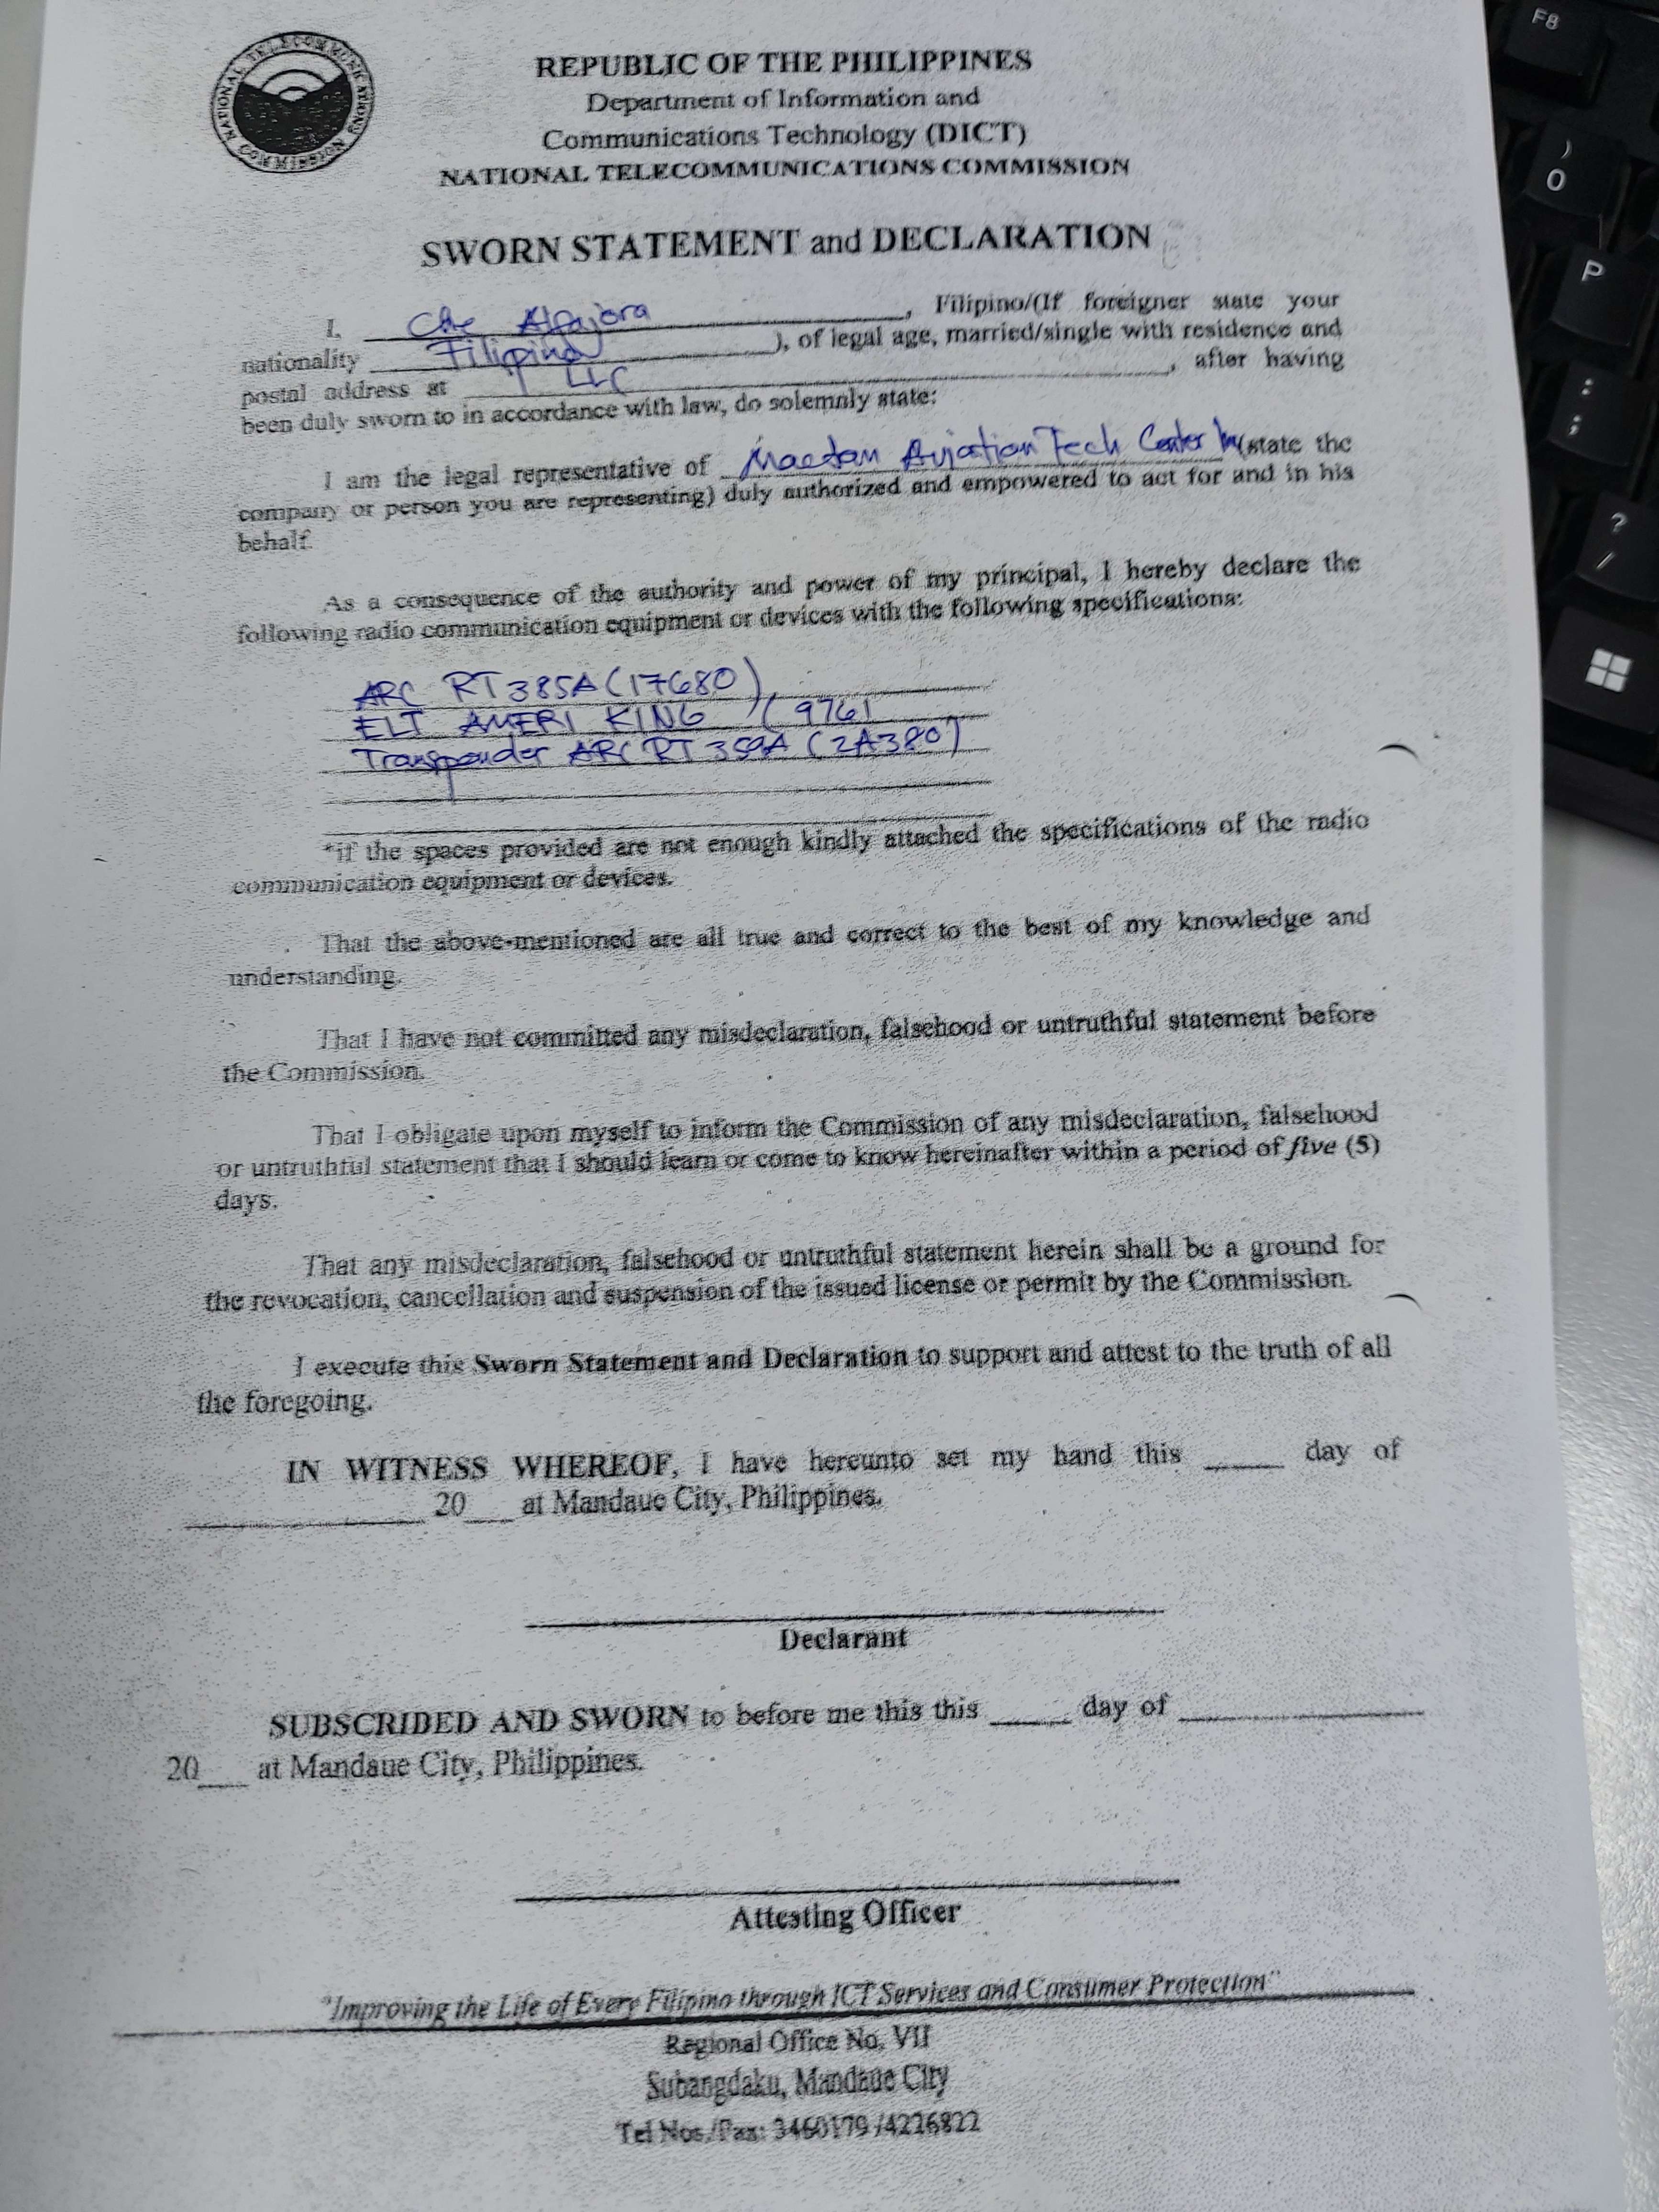 NATIONAL TELECOMMUNICATIONS COMMISSION
REPUBLIC OF THE PHILIPPINES
Department of Information and
Communications Technology (DICT)
NATIONAL TELECOMMUNICATIONS COMMISSION
SWORN STATEMENT and DECLARATION
I, Che Alpajora, Filipino/(If foreigner state your
nationality Filipino), of legal age, married/single with residence and
postal address at LLC, after having
been duly sworn to in accordance with law, do solemnly state:
I am the legal representative of Mactan Aviation Tech Center Inc (state the
company or person you are representing) duly authorized and empowered to act for and in his
behalf.
As a consequence of the authority and power of my principal, I hereby declare the
following radio communication equipment or devices with the following specifications:
ARC RT 385A (17680),
ELT AMERI KING / (9761
Transponder ARC RT 359A (2A380)
*if the spaces provided are not enough kindly attached the specifications of the radio
communication equipment or devices.
That the above-mentioned are all true and correct to the best of my knowledge and
understanding.
That I have not committed any misdeclaration, falsehood or untruthful statement before
the Commission.
That I obligate upon myself to inform the Commission of any misdeclaration, falsehood
or untruthful statement that I should learn or come to know hereinafter within a period of five (5)
days.
That any misdeclaration, falsehood or untruthful statement herein shall be a ground for
the revocation, cancellation and suspension of the issued license or permit by the Commission.
I execute this Sworn Statement and Declaration to support and attest to the truth of all
the foregoing.
IN WITNESS WHEREOF, I have hereunto set my hand this _____ day of
_______________ 20___ at Mandaue City, Philippines.
Declarant
SUBSCRIBED AND SWORN to before me this this _____ day of _______________
20___ at Mandaue City, Philippines.
Attesting Officer
"Improving the Life of Every Filipino through ICT Services and Consumer Protection"
Regional Office No. VII
Subangdaku, Mandaue City
Tel Nos./Fax: 3460179 /4226822
F8
)
0
P
:
;
?
/